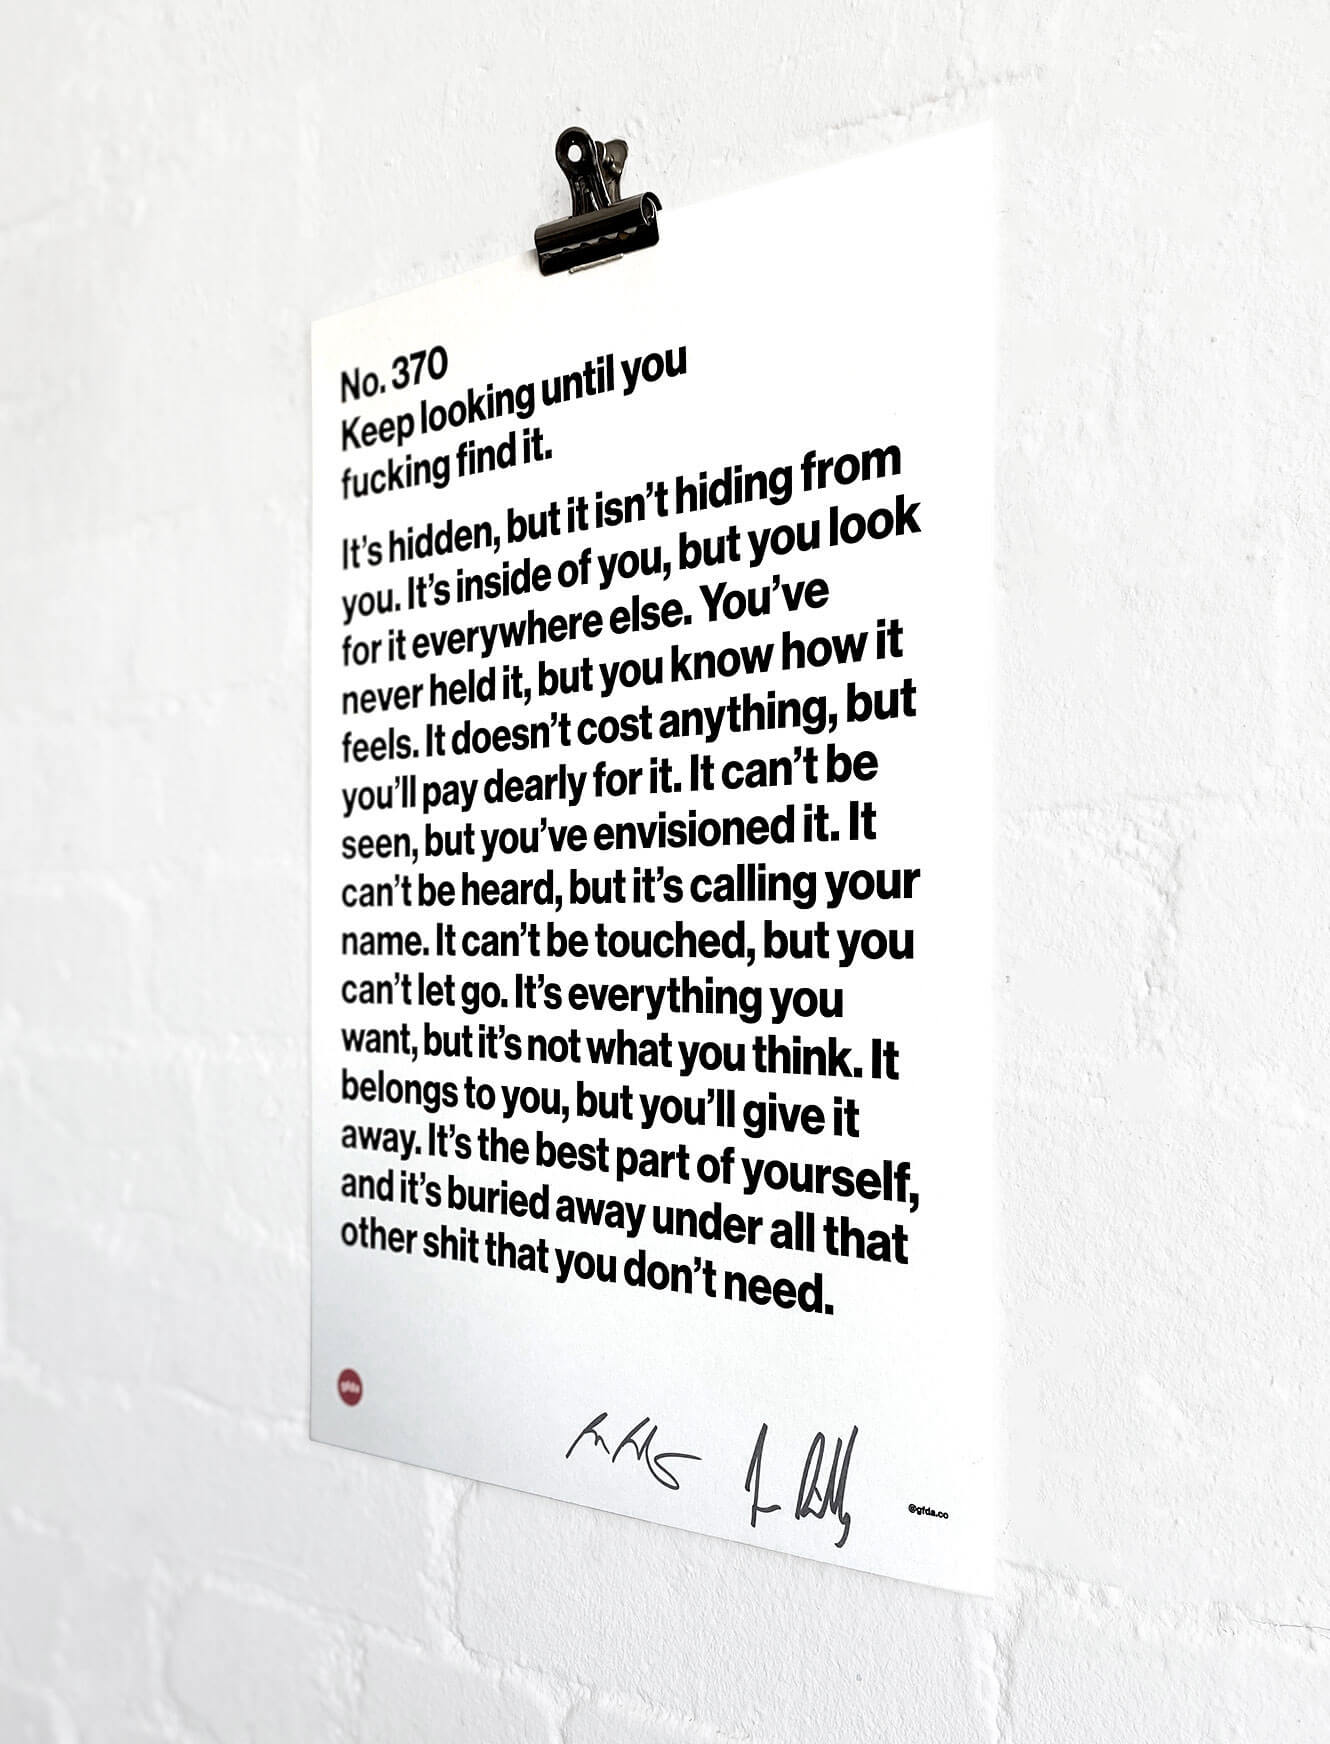 No. 370
Keep looking until you
fucking find it.
It's hidden, but it isn't hiding from
you. It's inside of you, but you look
for it everywhere else. You've
never held it, but you know how it
feels. It doesn't cost anything, but
you'll pay dearly for it. It can't be
seen, but you've envisioned it. It
can't be heard, but it's calling your
name. It can't be touched, but you
can't let go. It's everything you
want, but it's not what you think. It
belongs to you, but you'll give it
away. It's the best part of yourself,
and it's buried away under all that
other shit that you don't need.
gfda
@gfda.co